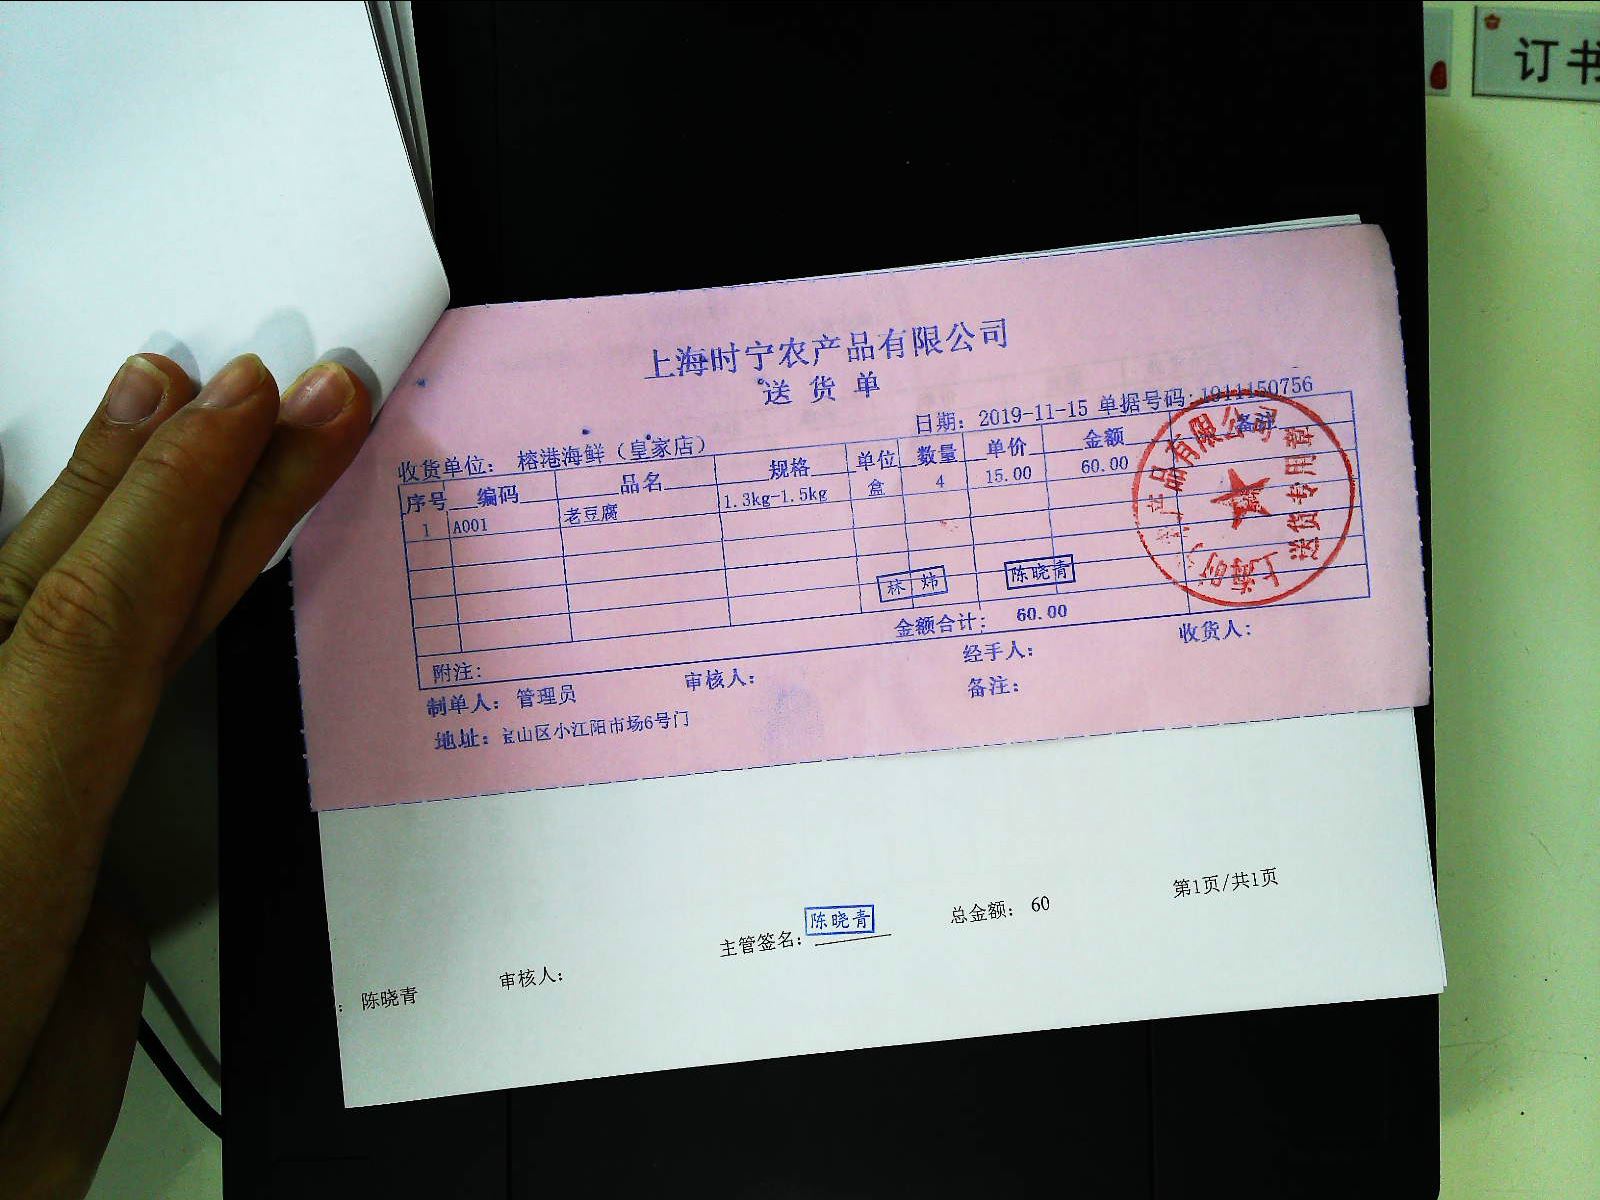 订书
上海时宁农产品有限公司
送货单
日期: 2019-11-15 单据号码: 1911150756
收货单位: 榕港海鲜（皇家店）
序号 编码 品名 规格 单位 数量 单价 金额 备注
1 A001 老豆腐 1.3kg-1.5kg 盒 4 15.00 60.00
林炜 陈晓青
金额合计: 60.00
附注:
制单人: 管理员 审核人: 经手人: 收货人:
地址: 宝山区小江阳市场6号门 备注:
产品有限公司
上海时
送货专用章
主管签名: 陈晓青 总金额: 60 第1页/共1页
: 陈晓青 审核人: